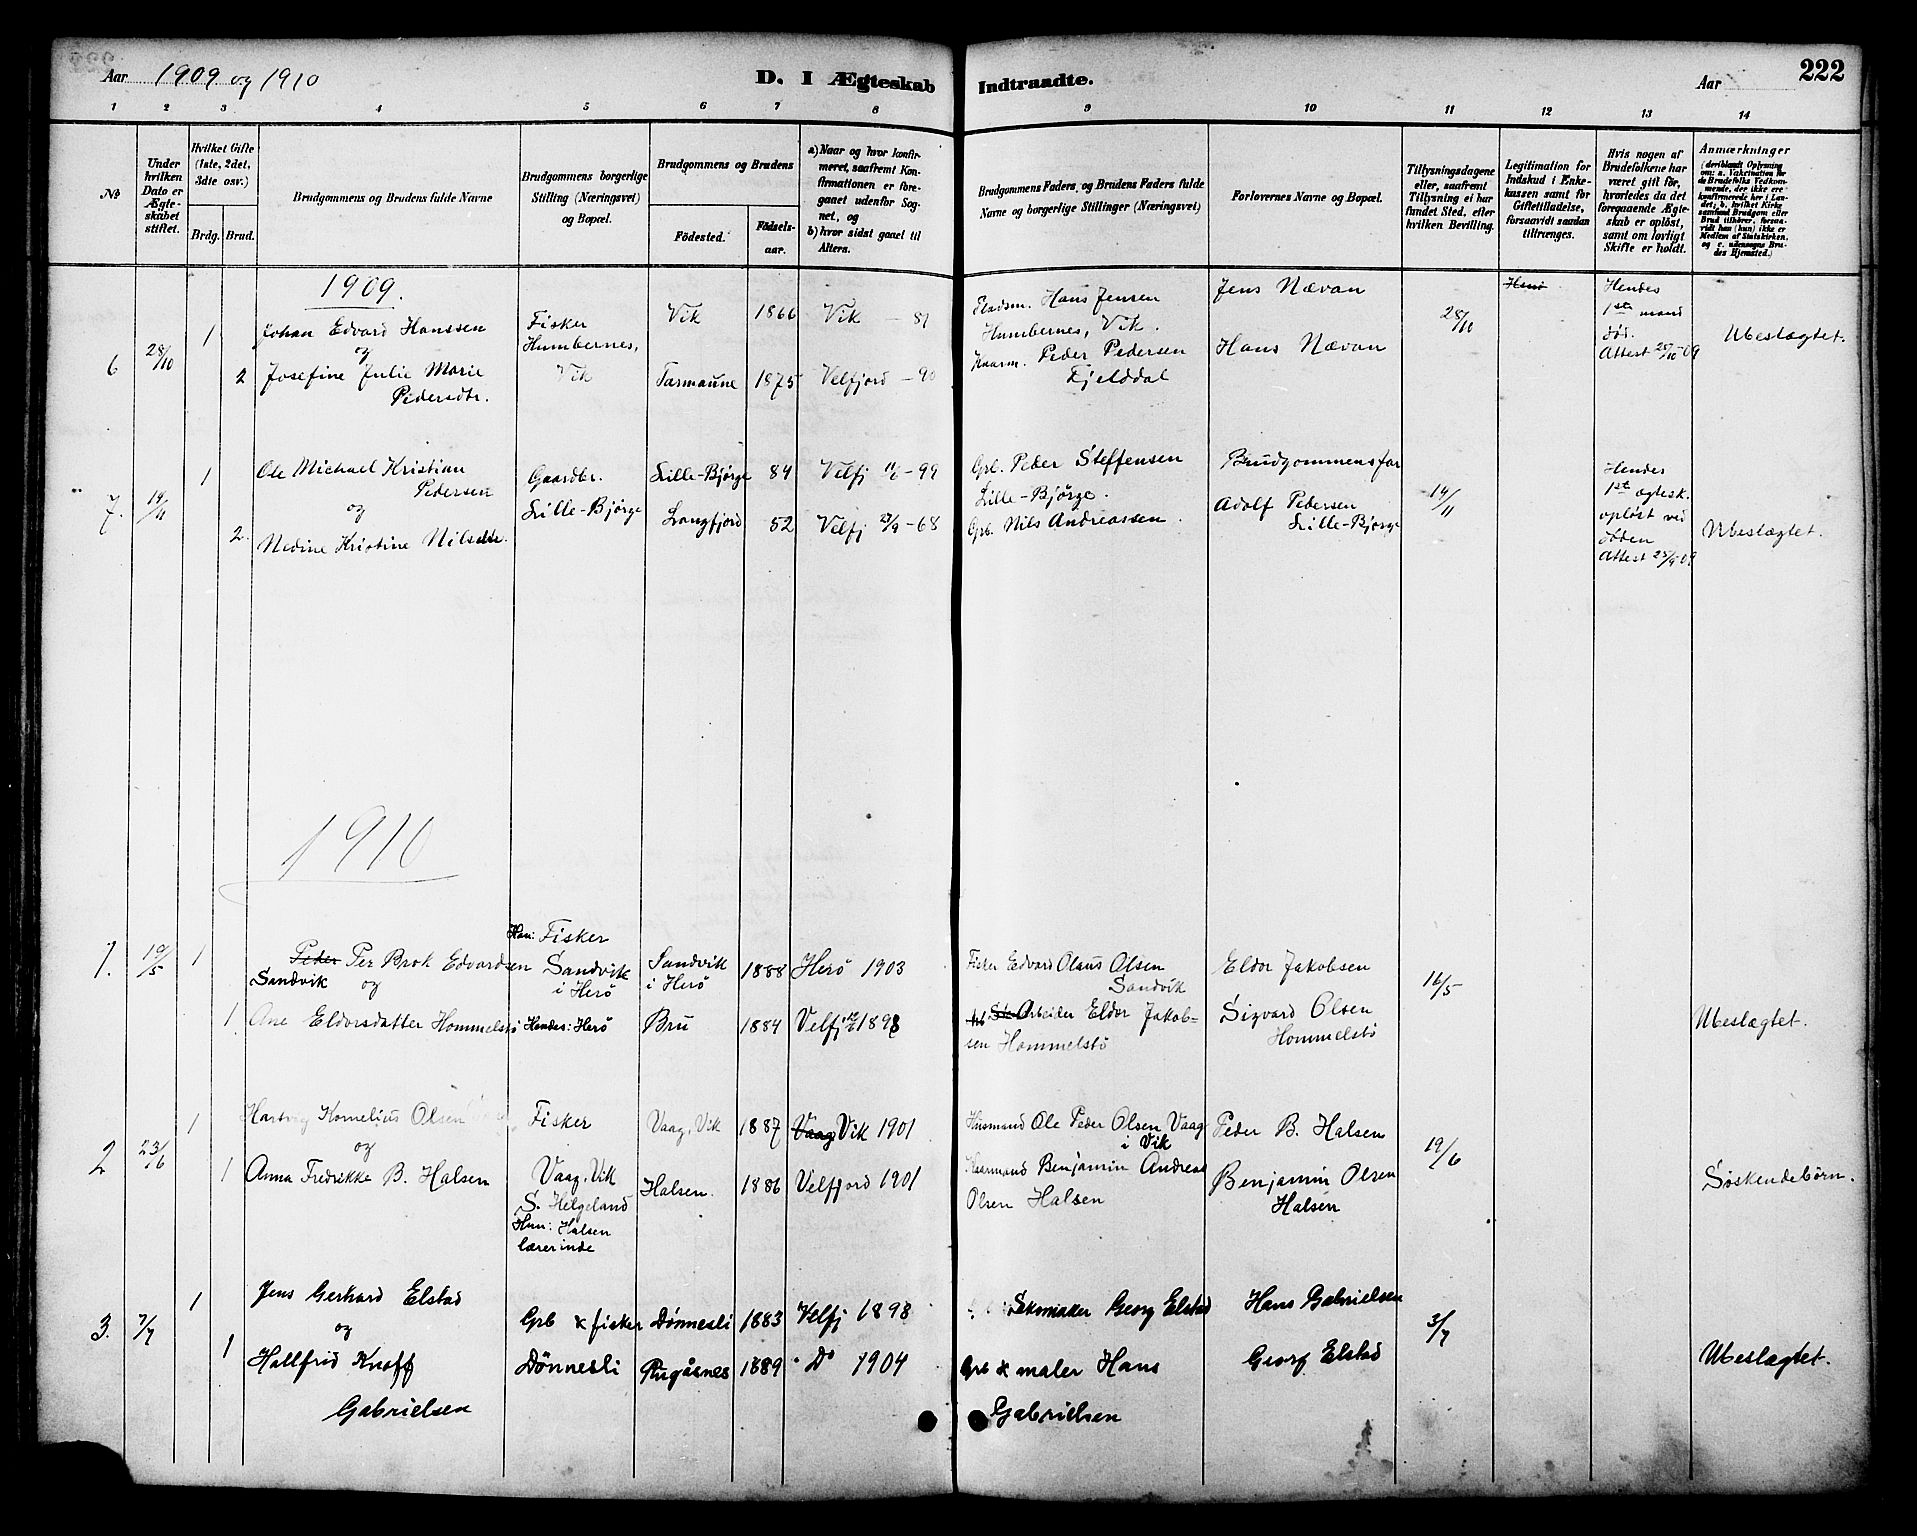 Aar 1909 og 1910
D. I Ægteskab
Indtraadte.
Aar
222
1 2 3 4 5 6 7 8 9 10 11 12 13 14
No
Under hvilken Dato er Ægteskabet stiftet.
Hvilket Gifte (1ste, 2det, 3die osv.)
Brdg. Brud.
Brudgommens og Brudens fulde Navne
Brudgommens borgerlige Stilling (Næringsvei) og Bopæl.
Brudgommens og Brudens
Fødested.
Fødselsaar.
a) Naar og hvor konfirmeret, saafremt Konfirmationen er foregaaet udenfor Sognet, og
b) hvor sidst gaaet til Alters.
Brudgommens Faders, og Brudens Faders fulde Navne og borgerlige Stillinger (Næringsvei)
Forlovernes Navne og Bopæl.
Tillysningsdagene eller, saafremt Tillysning ei har fundet Sted, efter hvilken Bevilling.
Legitimation for Indskud i Enkekassen samt for Giftetilladelse, forsaavidt saadan tiltrænges.
Hvis nogen af Brudefolkene har været gift før, hvorledes da det foregaaende Ægteskab er opløst, samt om lovligt Skifte er holdt.
Anmærkninger
(deriblandt Oplysning om: a. Vakcination for de Brudefolks Vedkommende, der ikke ere konfirmerede her i Landet; b. hvilket Kirkesamfund Brudgom eller Brud tilhører, forsaavidt han (hun) ikke er Medlem af Statskirken, og c. udensogns Brudes Hjemsted.)
1909.
6 28/10 1 Johan Edvard Hanssen
og
2 Josefine Julie Marie
Pedersdtr.
Fisker
Humbernes,
Vik
Vik 1866 Vik – 81
Tarmaune 1875 Velfjord – 90
Pladsm. Hans Jensen
Humbernes, Vik.
Kaarm. Peder Pedersen
Fjelddal
Jens Nævan
Hans Nævan
28/10
Hendes
1st mand
død.
Attest 25/10-09
Ubeslægtet.
7. 14/11 1 Ole Michael Kristian
Pedersen
og
2. Nedine Kristine Nilsdtr.
Gaardbr.
Lille-Bjørge
Lille-Bjørge 84 Velfj 11/6 – 99
Langfjord 52 Velfj 27/9 – 68
Grb. Peder Steffensen
Lille-Bjørge.
Grb. Nils Andreassen.
Brudgommens far
Adolf Pedersen
Lille-Bjørge
14/11
Hendes
1st ægtesk.
opløst ved
døden
Attest 25/9 09
Ubeslægtet.
1910
1. 19/5 1 Peder Per Brok Edvardsen
Sandvik og
1. Ane Eldorsdatter Hommelstø
Han: Fisker
Sandvik
i Herø
Hendes: Herø
Sandvik
i Herø 1888 Herø 1903
Bru 1884 Velfj 1898
Fisker Edvard Olaus Olsen
Sandvik
Arbeider Eldor Jakobsen
Hommelstø
Eldor Jakobsen
Sigvard Olsen
Hommelstø
16/5
Ubeslægtet.
2 23/6 1 Hartvig Kornelius Olsen
og
1 Anna Fredrikke B. Halsen
Fisker
Vaag, Vik
S. Helgeland
Hun: Halsen
lærerinde
Vaag, Vik 1887 Vaag Vik 1901
Halsen. 1886 Velfjord 1901
Husmand Ole Peder Olsen Vaag
i Vik
Kaarmand Benjamin Andreas
Olsen Halsen
Peder B. Halsen
Benjamin Olsen
Halsen
19/6
Søskendebørn.
3. 7/7 1 Jens Gerhard Elstad
og
1 Hallfrid Knoff
Gabrielsen
Grb & fisker
Dønnesli
Dønnesli 1883 Velfj 1898
Rugåsnes 1889 Do 1904
Skomaker Georg Elstad
Grb & maler Hans
Gabrielsen
Hans Gabrielsen
Georg Elstad
3/7
Ubeslægtet.